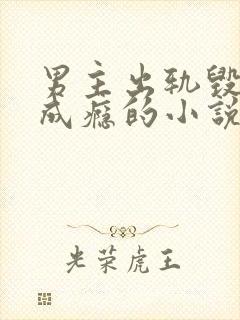 男主出轨毁
成瘾的小说
光荣虎王